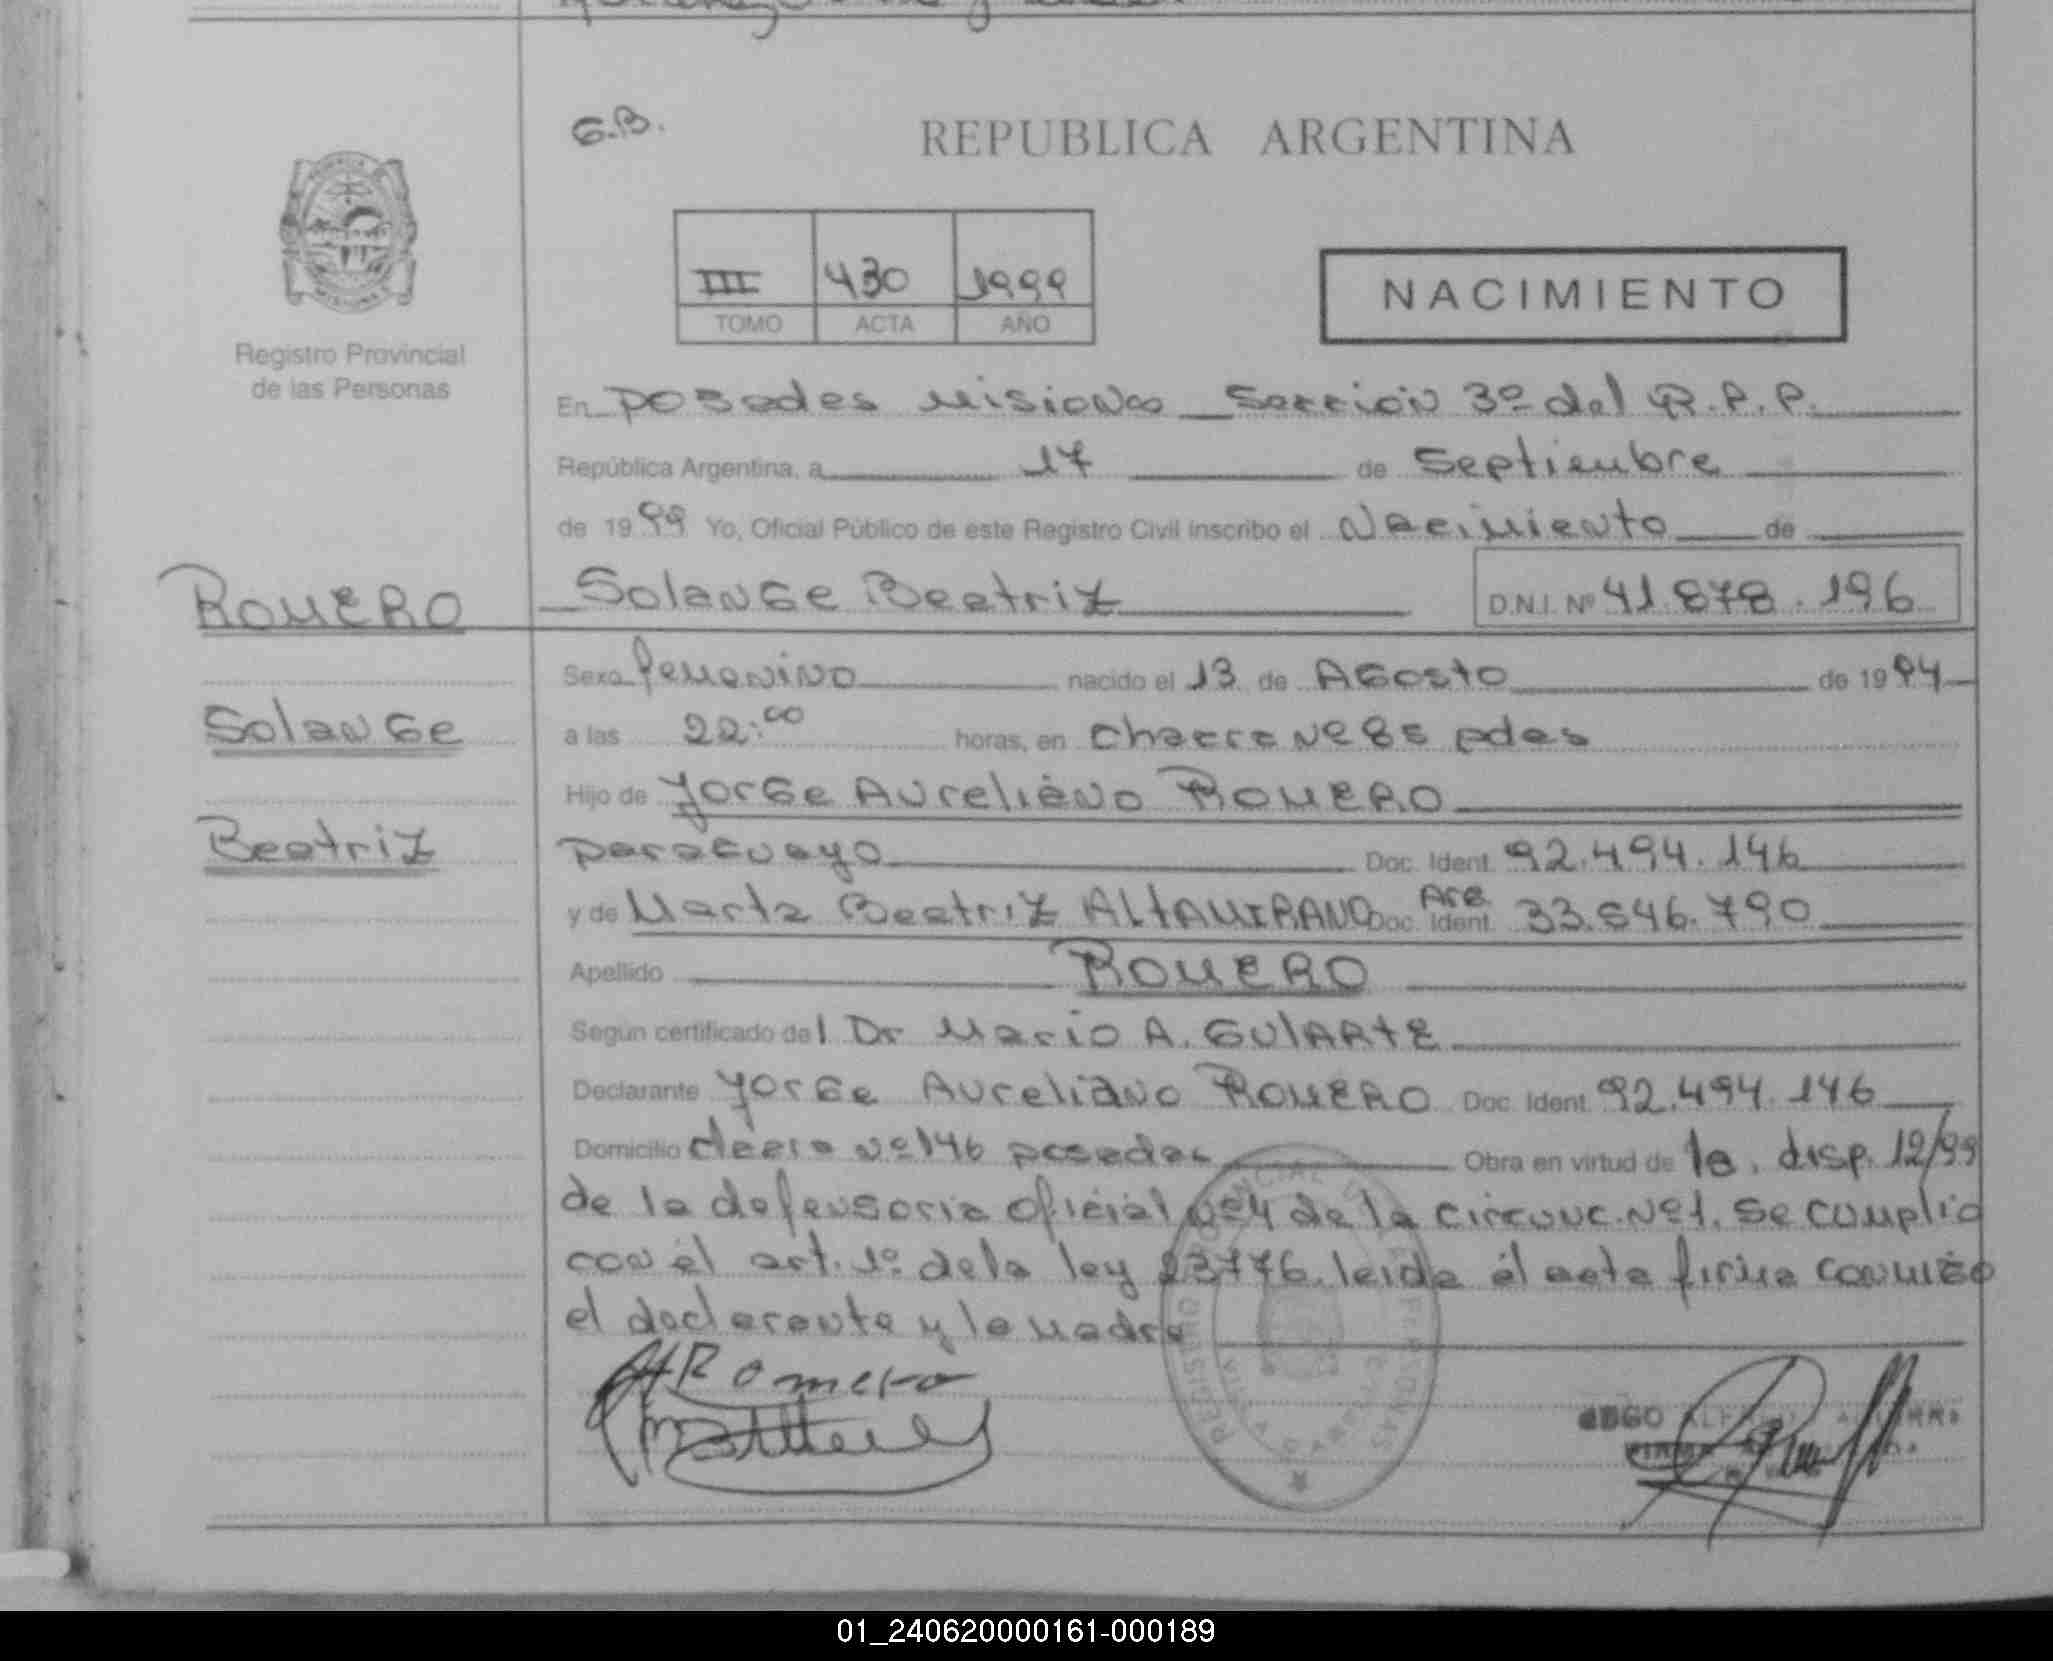 G.B.
REPUBLICA ARGENTINA
III 430 1999
TOMO ACTA AÑO
NACIMIENTO
Registro Provincial
de las Personas
En posadas Misiones Sección 3º del R.P.P.
República Argentina, a 17 de Septiembre
de 1999 Yo, Oficial Público de este Registro Civil inscribo el Nacimiento de
ROMERO Solange Beatriz D.N.I. Nº 41.878.196
Sexo femenino nacido el 13 de Agosto de 1994
Solange
a las 22:00 horas, en chacra Nº 85 pdas
Hijo de Jorge Aureliano ROMERO
Beatriz
paraguayo Doc. Ident. 92.494.146
y de Marta Beatriz ALTAMIRANO Arg. Doc. Ident. 33.646.790
Apellido ROMERO
Según certificado del Dr Mario A. GULARTE
Declarante Jorge Aureliano ROMERO Doc. Ident. 92.494.146
Domicilio chacra Nº 146 posadas Obra en virtud de la disp. 12/99
de la defensoria oficial Nº4 de la circunc. Nº1. Se cumplió
con el art. 1º de la ley 23776. leida el acta firma conmigo
el declarante y la madre
Romero
REGISTRO PROVINCIAL DE LAS PERSONAS
01_240620000161-000189